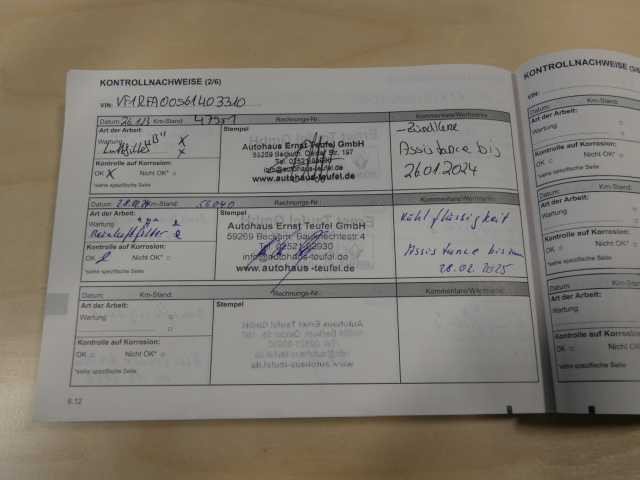 KONTROLLNACHWEISE (2/6)
VIN: VF1RFA00561403310
Datum: Km-Stand: 47951 Rechnungs-Nr.: Kommentare/Wertmarke
Art der Arbeit: Stempel
Wartung "B" X
Luftfilter X
Kontrolle auf Korrosion:
OK X Nicht OK* □
*siehe spezifische Seite
Autohaus Ernst Teufel GmbH
59269 Beckum, Oelder Str. 197
Tel. 02521/82930
info@autohaus-teufel.de
www.autohaus-teufel.de
- Zündkerze
Assistance bis
26.01.2024
Datum: Km-Stand: 56040 Rechnungs-Nr.: Kommentare/Wertmarke
Art der Arbeit: Stempel
Wartung
Reinluftfilter
Kontrolle auf Korrosion:
OK Nicht OK* □
*siehe spezifische Seite
Autohaus Ernst Teufel GmbH
59269 Beckum
Tel. 02521/82930
info@autohaus-teufel.de
www.autohaus-teufel.de
Kühlflüssigkeit
Assistance bis zum
28.02.2025
Datum: Km-Stand: Rechnungs-Nr.: Kommentare/Wertmarke
Art der Arbeit: Stempel
Wartung □
□
Kontrolle auf Korrosion:
OK □ Nicht OK* □
*siehe spezifische Seite
6.12
KONTROLLNACHWEISE
VIN:
Datum: Km-Stand:
Art der Arbeit:
Wartung
Kontrolle auf Korrosion:
OK □ Nicht OK*
*siehe spezifische Seite
Datum: Km-Stand
Art der Arbeit:
Wartung
Kontrolle auf Korrosion:
OK □ Nicht OK* □
*siehe spezifische Seite
Datum: Km-Stand
Art der Arbeit:
Wartung
Kontrolle auf Korrosion:
OK □ Nicht OK* □
*siehe spezifische Seite